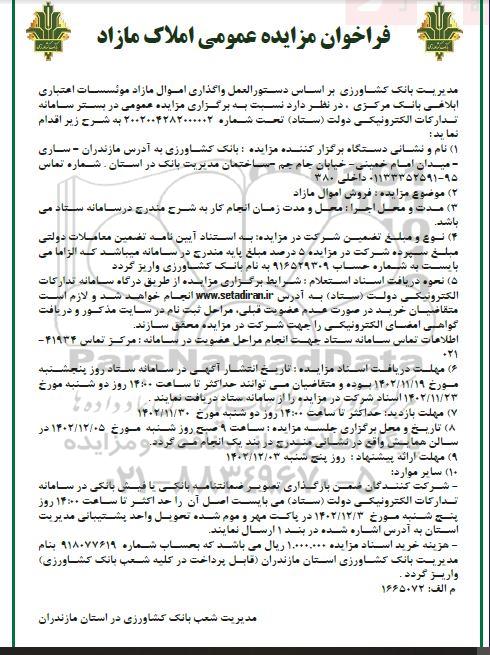 فراخوان مزایده عمومی املاک مازاد
مدیریت بانک کشاورزی بر اساس دستورالعمل واگذاری اموال مازاد موئسسات اعتباری
ابلاغی بانک مرکزی ، در نظر دارد نسبت به برگزاری مزایده عمومی در بستر سامانه
تدارکات الکترونیکی دولت (ستاد) تحت شماره ۲۰۰۲۰۰۴۲۸۲۰۰۰۰۰۲ به شرح زیر اقدام
نماید:
۱) نام و نشانی دستگاه برگزار کننده مزایده : بانک کشاورزی به آدرس مازندران - ساری
- میدان امام خمینی- خیابان جام جم -ساختمان مدیریت بانک در استان . شماره تماس
۹۵-۰۱۱۳۳۳۵۲۵۹۱ داخلی ۳۸۰
۲) موضوع مزایده : فروش اموال مازاد
۳) مدت و محل اجرا : محل و مدت زمان انجام کار به شرح مندرج درسامانه ستاد می
باشد.
۴) نوع و مبلغ تضمین شرکت در مزایده: به استناد آیین نامه تضمین معاملات دولتی
مبلغ سپرده شرکت در مزایده ۵ درصد مبلغ پایه مندرج در سامانه میباشد که الزاما می
بایست به شماره حساب ۹۱۶۵۲۹۳۰۹ به نام بانک کشاورزی واریز گردد
۵) نحوه دریافت اسناد استعلام : شرایط برگزاری مزایده از طریق درگاه سامانه تدارکات
الکترونیکی دولت (ستاد) به آدرس www.setadiran.ir انجام خواهند شد و لازم است
متقاضیان خرید در صورت عدم عضویت قبلی، مراحل ثبت نام در سایت مذکور و دریافت
گواهی امضای الکترونیکی را جهت شرکت در مزایده محقق سازند.
اطلاعات تماس سامانه ستاد جهت انجام مراحل عضویت در سامانه : مرکز تماس ۴۱۹۳۴-
۰۲۱
۶) مهلت دریافت اسناد مزایده : تاریخ انتشار آگهی در سامانه ستاد روز پنجشنبه
مورخ ۱۴۰۲/۱۱/۱۹ بوده و متقاضیان می توانند حداکثر تا ساعت ۱۴:۰۰ روز دو شنبه مورخ
۱۴۰۲/۱۱/۲۳ اسناد شرکت در مزایده را از سامانه ستاد دریافت نمایند .
۷) مهلت بازدید: حداکثر تا ساعت ۱۴:۰۰ روز دو شنبه مورخ ۱۴۰۲/۱۱/۳۰
۸) تاریخ و محل برگزاری جلسه مزایده : ساعت ۹ صبح روز شنبه مورخ ۱۴۰۲/۱۲/۰۵ در
سالن همایش واقع در نشانی مندرج در بند یک انجام می گردد.
۹) مهلت ارائه پیشنهاد : روز پنج شنبه ۱۴۰۲/۱۲/۰۳
۱۰) سایر موارد:
- شرکت کنندگان ضمن بارگذاری تصویر ضمانتنامه بانکی یا فیش بانکی در سامانه
تدارکات الکترونیکی دولت (ستاد) می بایست اصل آن را حداکثر تا ساعت ۱۴:۰۰ روز
پنج شنبه مورخ ۱۴۰۲/۱۲/۳ در پاکت مهر و موم شده تحویل واحد پشتیبانی مدیریت
استان به آدرس اشاره شده در بند ۱ ارسال نمایند.
- هزینه خرید اسناد مزایده ۱.۰۰۰.۰۰۰ ریال می باشد که بحساب شماره ۹۱۸۰۷۷۶۱۹ بنام
مدیریت بانک کشاورزی استان مازندران (قابل پرداخت در کلیه شعب بانک کشاورزی)
واریز گردد .
م الف: ۱۶۶۵۰۷۲
مدیریت شعب بانک کشاورزی در استان مازندران
ParsNamadData
۰۲۱-۸۸۳۴۹۶۷۰-۵